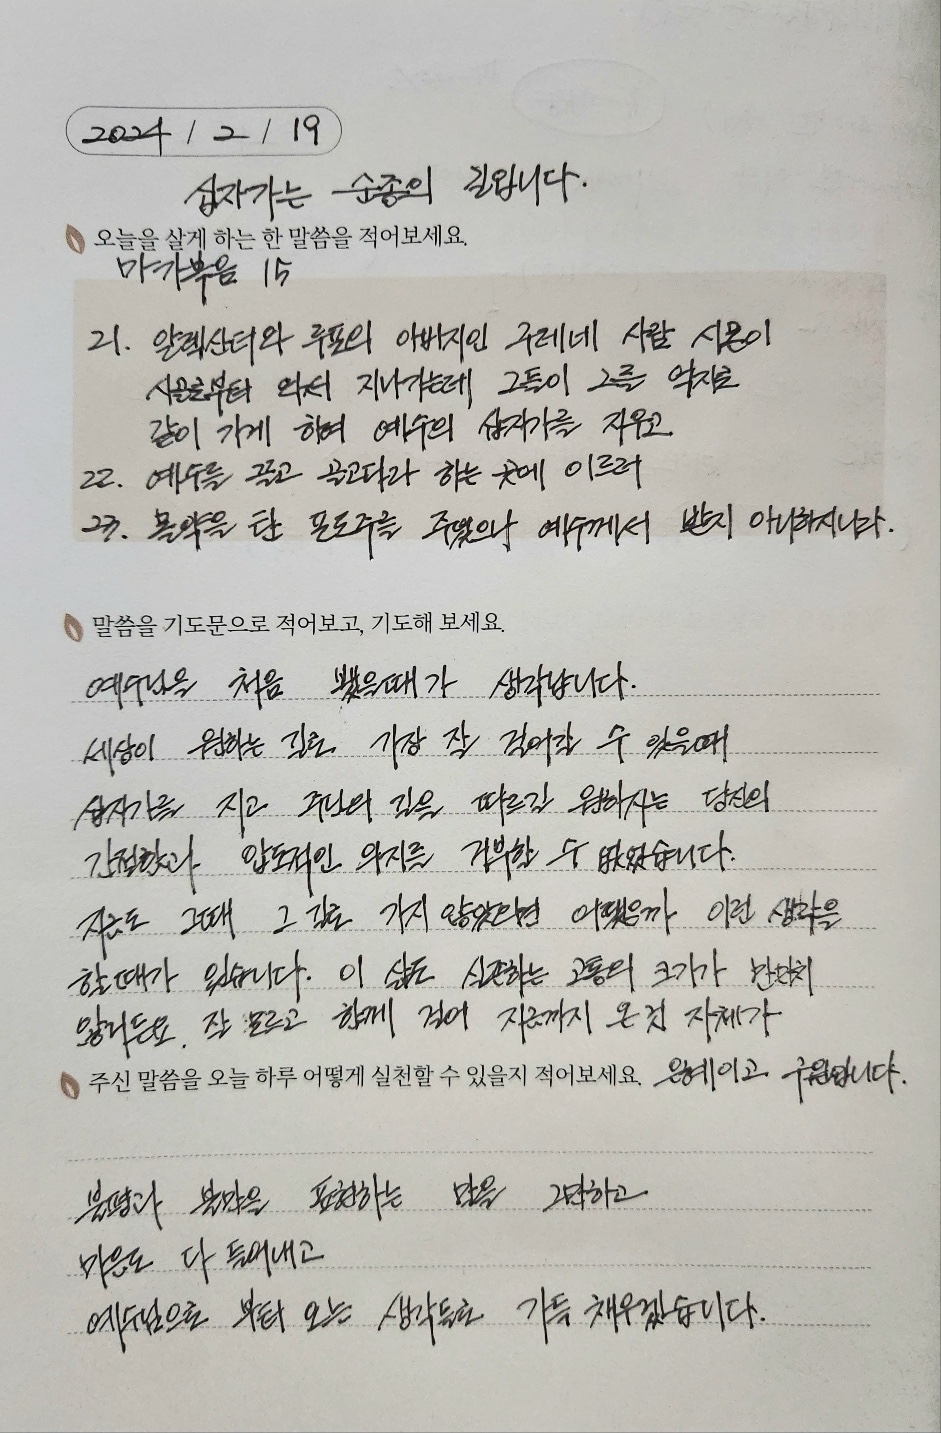 2024 / 2 / 19
십자가는 순종의 길입니다.
오늘을 살게 하는 한 말씀을 적어보세요.
마가복음 15
21. 알렉산더와 루포의 아버지인 구레네 사람 시몬이
시골로부터 와서 지나가는데 그들이 그를 억지로
같이 가게 하여 예수의 십자가를 지우고
22. 예수를 끌고 골고다라 하는 곳에 이르러
23. 몰약을 탄 포도주를 주었으나 예수께서 받지 아니하시니라.
말씀을 기도문으로 적어보고, 기도해 보세요.
예수님을 처음 봤을때가 생각납니다.
세상이 원하는 길로 가장 잘 걸어갈 수 있을때
십자가를 지고 주님의 길을 따르길 원하시는 당신의
간절함과 압도적인 의지를 거부할 수 없었습니다.
지금도 그때 그 길로 가지 않았다면 어땠을까 이런 생각을
할때가 있습니다. 이 삶도 실존하는 고통의 크기가 만만치
않더든요. 잘 모르고 함께 걸어 지금까지 온 것 자체가
주신 말씀을 오늘 하루 어떻게 실천할 수 있을지 적어보세요. 은혜이고 구원입니다.
불평과 불만을 표현하는 말을 그만하고
마음도 다 들어내고
예수님으로 부터 오는 생각들로 가득 채우겠습니다.